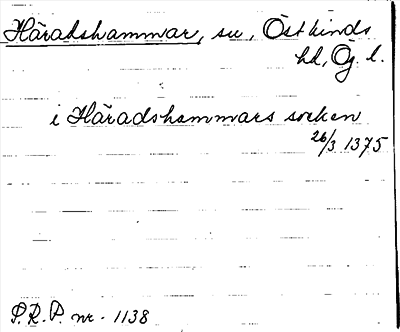 Häradshammar, sn, Östkinds
hd, Ög l.
i Häradshammars socken
26/3 1375
P.R.P. nr. 1138